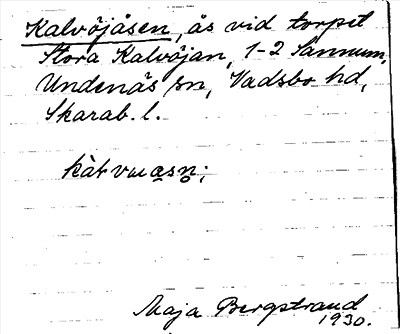 Kalvöjåsen, ås vid torpet
Stora Kalvöjan, 1-2 Sannum,
Undenäs sn, Vadsbo hd,
Skarab. l.
Maja Bergstrand
1930.